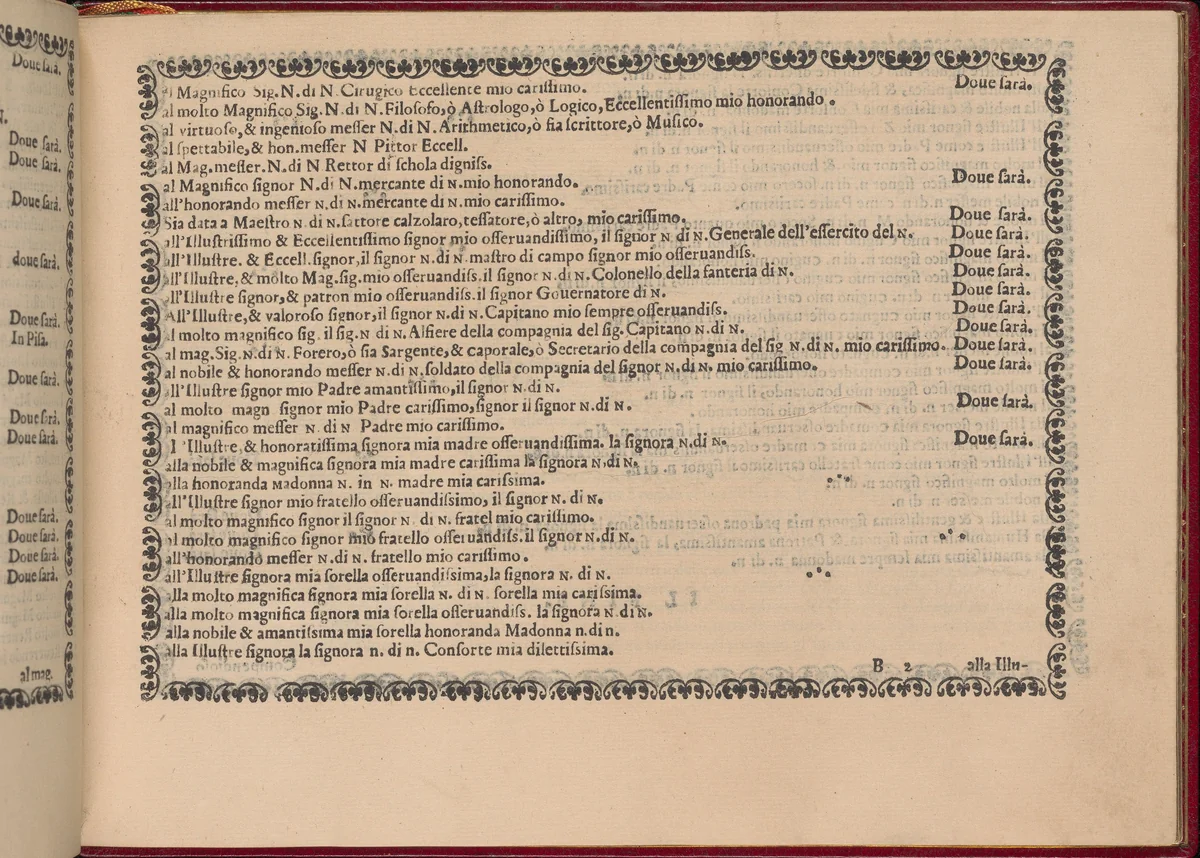 Doue sarà.
N.
Doue sarà.
Doue sarà.
Doue sarà.
doue sarà.
Doue sarà.
In Pisa.
Doue sarà.
Doue sarà.
Doue sarà.
Doue sarà.
Doue sarà.
Doue sarà.
Doue sarà.
al mag.
al Magnifico Sig. N. di N. Cirugico Eccellente mio carissimo. Doue sarà.
al molto Magnifico Sig. N. di N. Filosofo, ò Astrologo, ò Logico, Eccellentissimo mio honorando.
al virtuoso, & ingenioso messer N. di N. Arithmetico, ò sia scrittore, ò Musico.
al spettabile, & hon. messer N Pittor Eccell.
al Mag. messer. N. di N Rettor di schola digniss.
al Magnifico signor N. di N. mercante di N. mio honorando. Doue sarà.
all'honorando messer N. di N. mercante di N. mio carissimo.
Sia data a Maestro N. di N. sattore calzolaro, tessatore, ò altro, mio carissimo. Doue sarà.
all'Illustrissimo & Eccellentissimo signor mio osseruandissimo, il signor N di N. Generale dell'essercito del N. Doue sarà.
all'Illustre. & Eccell. signor, il signor N. di N. mastro di campo signor mio osseruandiss. Doue sarà.
all'Illustre, & molto Mag. sig. mio osseruandiss. il signor N. di N. Colonello della fanteria di N. Doue sarà.
all'Illustre signor, & patron mio osseruandiss. il signor Gouernatore di N. Doue sarà.
All'Illustre, & valoroso signor, il signor N. di N. Capitano mio sempre osseruandiss. Doue sarà.
al molto magnifico sig. il sig. N di N. Alfiere della compagnia del sig. Capitano N. di N. Doue sarà.
al mag. Sig. N. di N. Forero, ò sia Sargente, & caporale, ò Secretario della compagnia del sig N. di N. mio carissimo. Doue sarà.
al nobile & honorando messer N. di N. soldato della compagnia del signor N. di N. mio carissimo. Doue sarà.
all'Illustre signor mio Padre amantissimo, il signor N. di N.
al molto magn signor mio Padre carissimo, signor il signor N. di N. Doue sarà.
al magnifico messer N. di N Padre mio carissimo.
l 'Illustre, & honoratissima signora mia madre osseruandissima. la signora N. di N. Doue sarà.
alla nobile & magnifica signora mia madre carissima la signora N. di N.
alla honoranda Madonna N. in N. madre mia carissima.
all'Illustre signor mio fratello osseruandissimo, il signor N. di N.
al molto magnifico signor il signor N. di N. fratel mio carissimo.
al molto magnifico signor mio fratello osseruandiss. il signor N. di N.
all'honorando messer N. di N. fratello mio carissimo.
all'Illustre signora mia sorella osseruandissima, la signora N. di N.
alla molto magnifica signora mia sorella N. di N. sorella mia carissima.
alla molto magnifica signora mia sorella osseruandiss. la signora N. di N.
alla nobile & amantissima mia sorella honoranda Madonna n. di n.
alla Illustre signora la signora n. di n. Consorte mia dilettissima.
B 2 alla Illu-